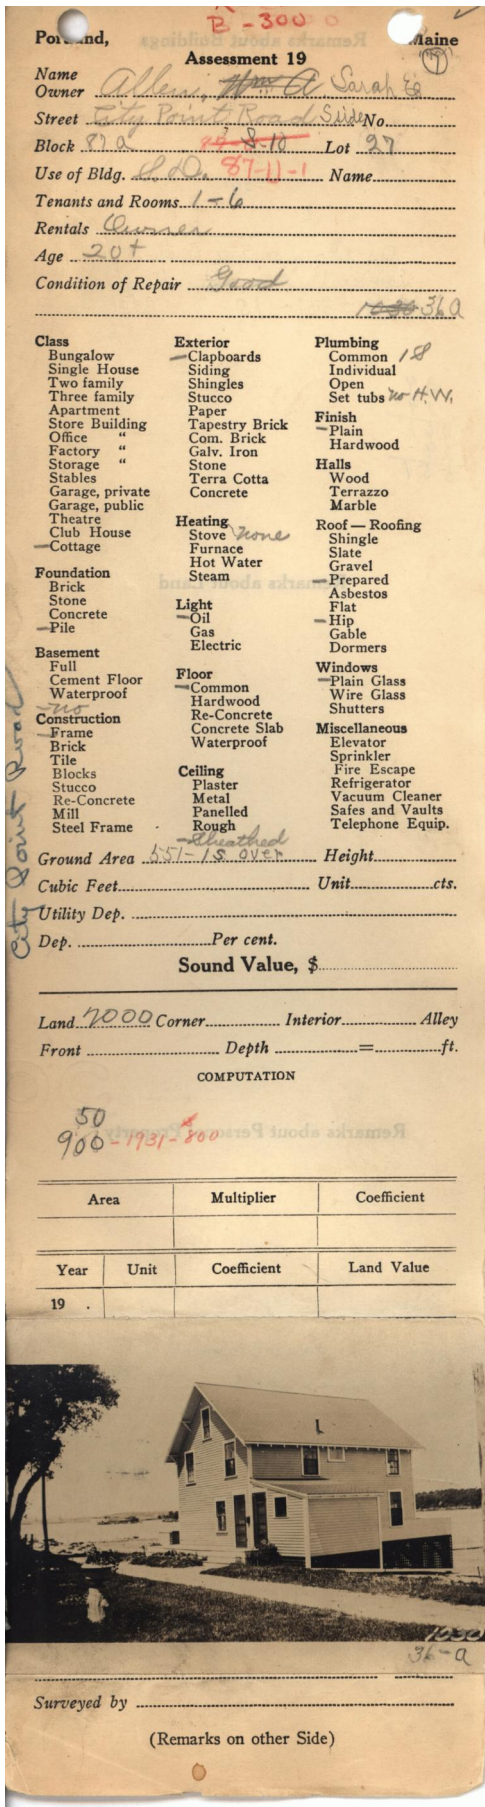 B - 300
Portland, Maine
Assessment 19
Name
Owner Allen, Wm A. Sarah E
Street City Point Road Side No.
Block 87a 8-10 Lot 27
Use of Bldg. S.D. 87-U-1 Name
Tenants and Rooms 1-6
Rentals Owner
Age 20+
Condition of Repair Good
1030 36a
Class
Bungalow
Single House
Two family
Three family
Apartment
Store Building
Office "
Factory "
Storage "
Stables
Garage, private
Garage, public
Theatre
Club House
Cottage
Foundation
Brick
Stone
Concrete
Pile
Basement
Full
Cement Floor
Waterproof
no
Construction
Frame
Brick
Tile
Blocks
Stucco
Re-Concrete
Mill
Steel Frame
Exterior
Clapboards
Siding
Shingles
Stucco
Paper
Tapestry Brick
Com. Brick
Galv. Iron
Stone
Terra Cotta
Concrete
Heating
Stove none
Furnace
Hot Water
Steam
Light
Oil
Gas
Electric
Floor
Common
Hardwood
Re-Concrete
Concrete Slab
Waterproof
Ceiling
Plaster
Metal
Panelled
Rough
Sheathed
Plumbing
Common 1S
Individual
Open
Set tubs no H.W.
Finish
Plain
Hardwood
Halls
Wood
Terrazzo
Marble
Roof — Roofing
Shingle
Slate
Gravel
Prepared
Asbestos
Flat
Hip
Gable
Dormers
Windows
Plain Glass
Wire Glass
Shutters
Miscellaneous
Elevator
Sprinkler
Fire Escape
Refrigerator
Vacuum Cleaner
Safes and Vaults
Telephone Equip.
City Point Road
Ground Area 551-1S over Height
Cubic Feet Unit cts.
Utility Dep.
Dep. Per cent.
Sound Value, $
Land 7000 Corner Interior Alley
Front Depth = ft.
COMPUTATION
50
900 - 1931 - 800
Area Multiplier Coefficient
Year Unit Coefficient Land Value
19 .
1030
36-a
Surveyed by
(Remarks on other Side)